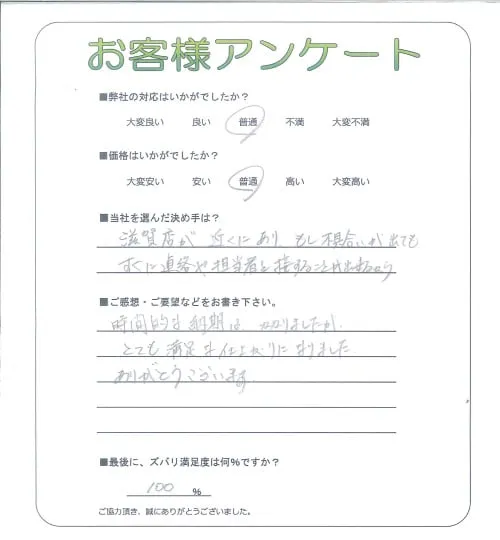 お客様アンケート
■弊社の対応はいかがでしたか？
大変良い 良い 普通 不満 大変不満
■価格はいかがでしたか？
大変安い 安い 普通 高い 大変高い
■当社を選んだ決め手は？
滋賀店が 近くにあり、もし不具合いが出ても
すぐに連絡や担当者と接することが出来るから
■ご感想・ご要望などをお書き下さい。
時間的な納期は かかりましたが、
とても満足な仕上がりになりました
ありがとうございます。
■最後に、ズバリ満足度は何%ですか？
100 %
ご協力頂き、誠にありがとうございました。